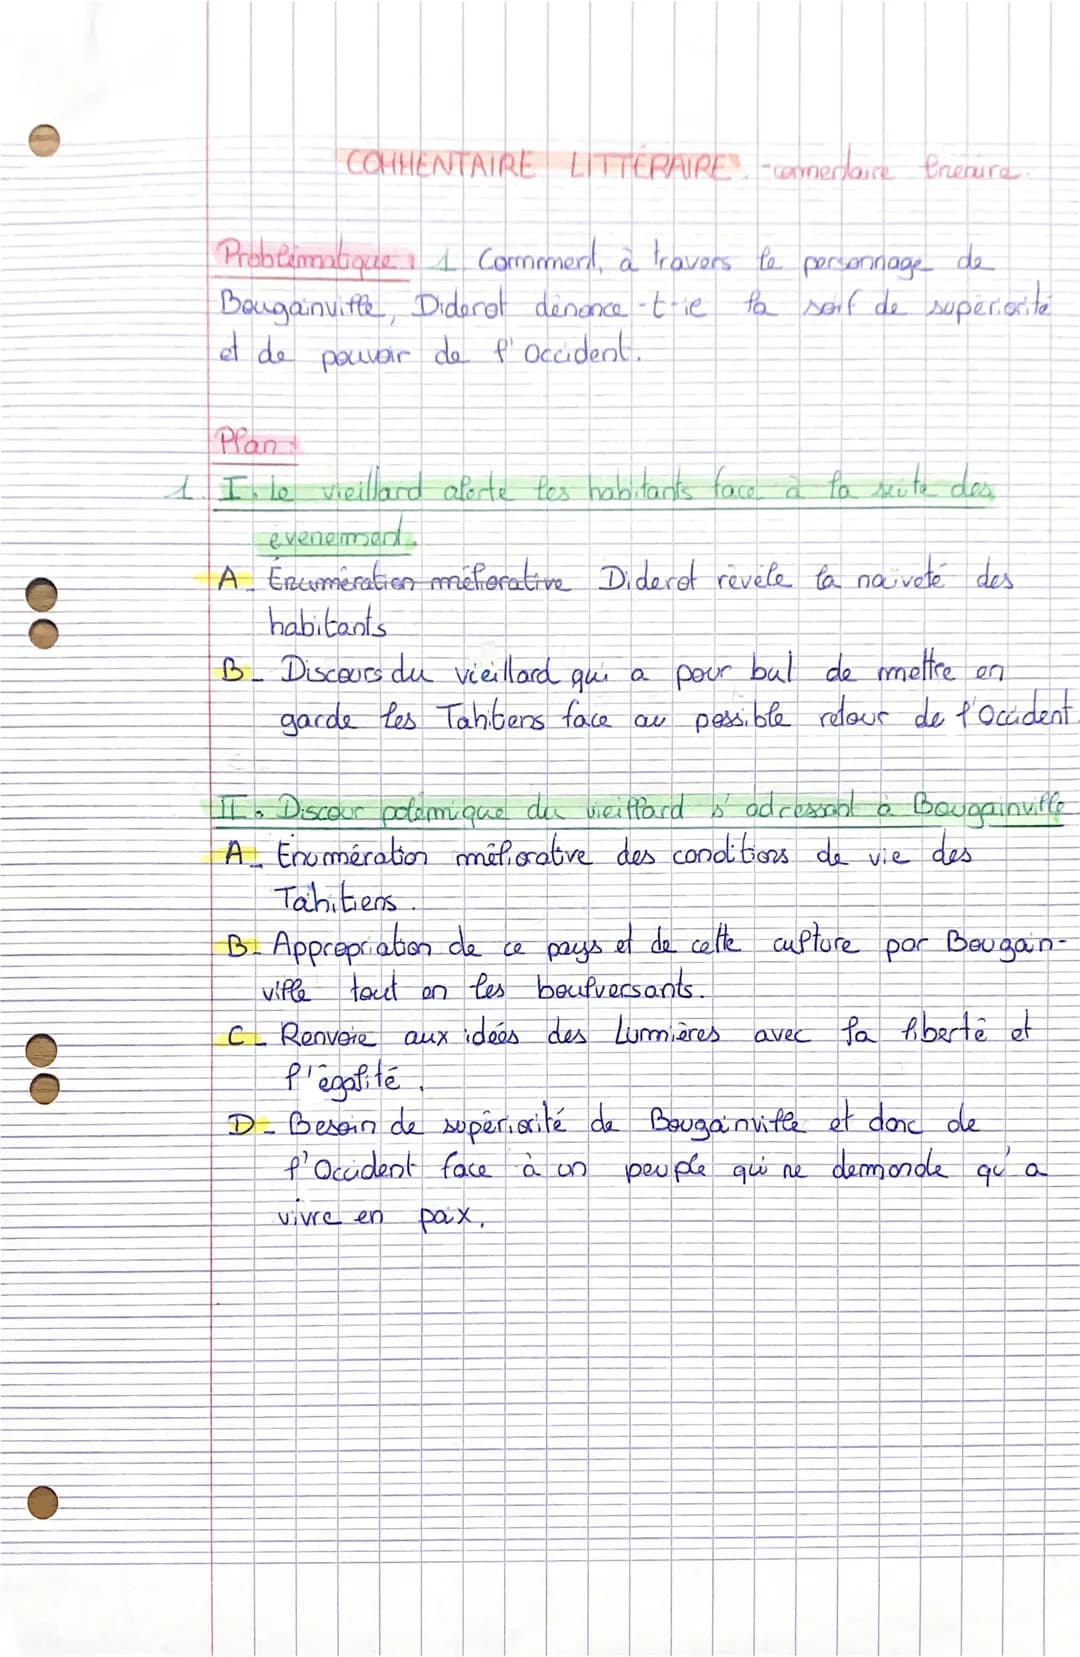 COMMENTAIRE LITTÉRAIRE. - commentaire
Problématique : 1. Comment, à travers le personnage de
Bougainville, Diderot dénonce-t-ie la soif de supériorité
et de pouvoir de l'Occident.
Plan :
1. I. Le vieillard alerte les habitants face à la suite des
evenement.
A - Enumération méliorative Diderot révèle la naïveté des
habitants
B - Discours du vieillard qui a pour but de mettre en
garde les Tahitiens face au possible retour de l'Occident.
II. Discour polémique du vieillard s'adressant à Bougainville
A - Enumération méliorative des conditions de vie des
Tahitiens.
B - Appropriation de ce pays et de cette culture par Bougain-
ville tout en les boulversants.
C - Renvoie aux idées des Lumières avec la liberté et
l'égalité.
D - Besoin de supériorité de Bougainville et donc de
l'Occident face à un peuple qui ne demande qu'a
vivre en paix.